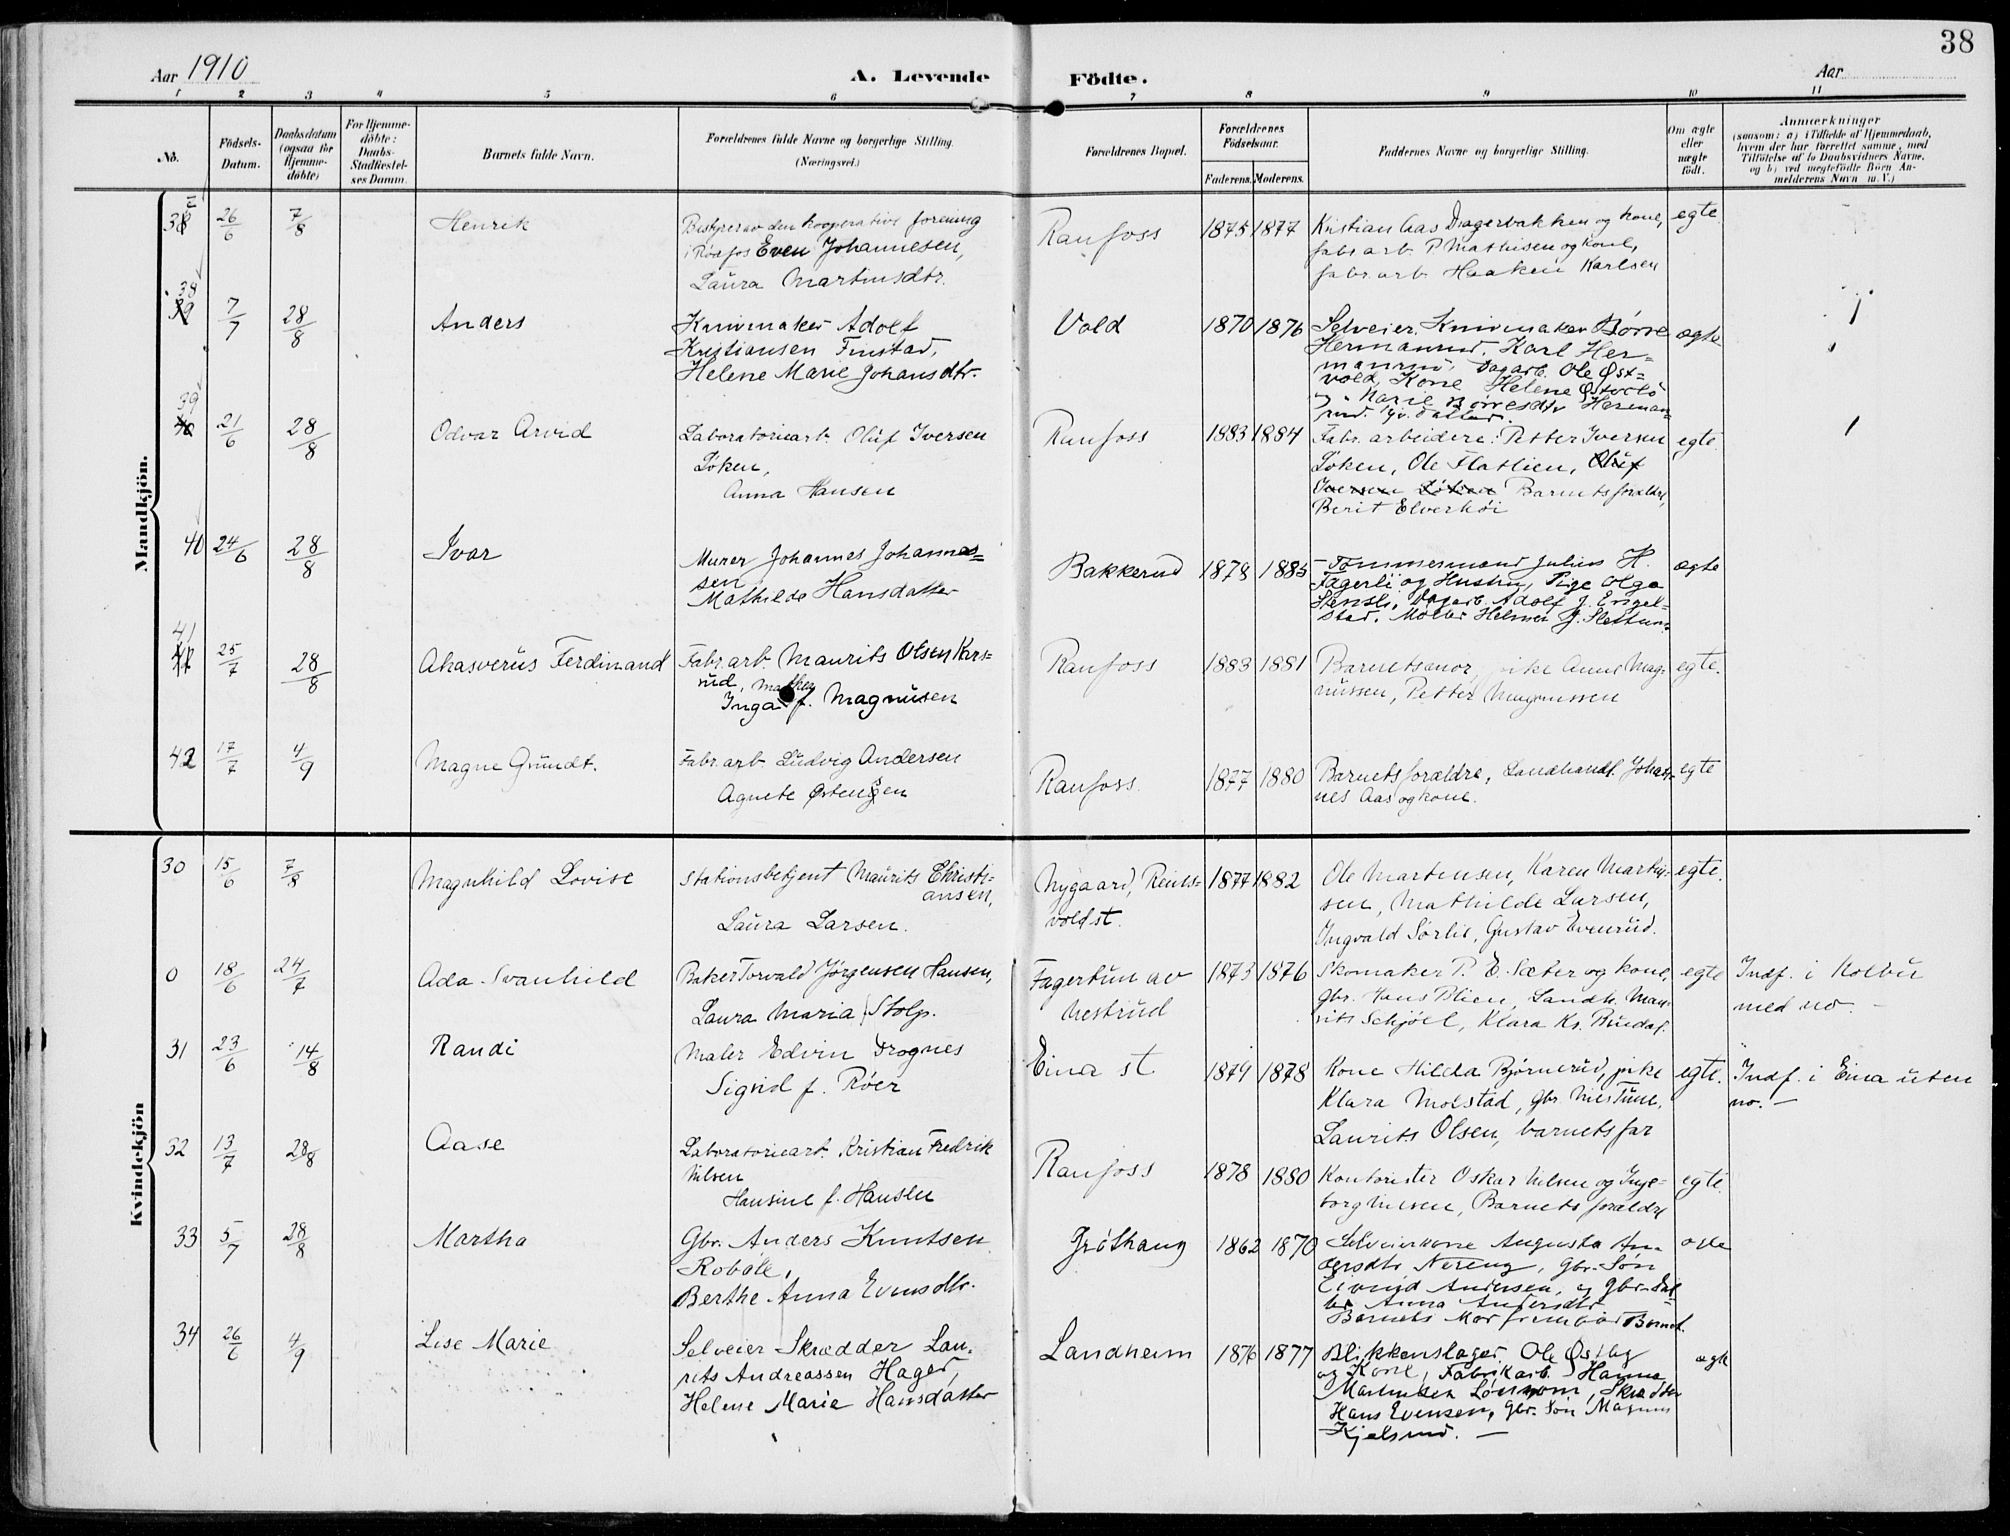 38
Aar 1910
A. Levende
Födte.
Aar
1 2 3 4 5 6 7 8 9 10 11
No.
Födsels-Datum.
Daabsdatum (ogsaa for Hjemme-döbte)
For Hjemme-döbte: Daabs-Stadfæstel-ses Datum.
Barnets fulde Navn.
Forældrenes fulde Navne og borgerlige Stilling. (Næringsvei.)
Forældrenes Bopæl.
Forældrenes Födselsaar.
Faderens. Moderens.
Faddernes Navne og borgerlige Stilling.
Om ægte eller uægte födt.
Anmærkninger
(saasom: a) i Tilfælde af Hjemmedaab, hvem der har forrettet samme, med Tilföielse af to Daabsvidners Navne, og b) ved uegtefödte Börn An-melderens Navn m. V.)
Mandkjön.
26/6 7/8 Henrik
Bestyrer av den kooperative forening
i Raufos Even Johannesen,
Laura Martinsdtr.
Raufoss 1875 1877
Kristian Aas Dragerbakken og kone,
fabr.arb P Mathisen og kone,
fabr.arb Haaken Karlsen
egte
38 7/7 28/8 Anders
Knivmaker Adolf
Kristiansen Finstad,
Helene Marie Johansdtr.
Vold 1870 1876
Selveier, Knivmaker Börre
Hermanrud, Karl Her=
manrud, Dagarb. Ole Øst=
vold, Kone Helene Østvold
og Marie Börresdtr Herman-
rud.
ægte
39 21/6 28/8 Odvar Arvid
Laboratoriearb. Oluf Iversen
Løken,
Anna Hansen
Raufoss 1883 1884
Fabr.arbeidere: Petter Iversen
Løken, Ole Flatlien, Oluf
Iversen Løken Barnets forældre,
Berit Elverhöi
egte
40 24/6 28/8 Ivar
Murer Johannes Johannes=
sen
Mathilde Hansdatter
Bakkerud 1878 1885
Tømmermand Julius H.
Fagerli og Hustru, Pige Olga
Stensli, Dagarb. Adolf J. Engel-
stad, Møller Helmer J. Slettum.
ægte
41 25/7 28/8 Ahasverus Ferdinand
Fabr.arb Maurits Olsen Kors=
rud,
Inga f. Magnusen
Raufoss 1883 1881
Barnets mor, pike Anne Mag-
nussen, Petter Magnussen
egte.
42 17/7 4/9 Magne Grundt.
Fabr.arb. Ludvig Andersen
Agnete Østengen
Raufoss. 1877 1880
Barnets forældre, Landhandl. Johan-
nes Aas og kone.
egte
Kvindekjön
30 15/6 7/8 Magnhild Lovise
Stationsbetjent Maurits Christi=
ansen,
Laura Larsen.
Nygaard, Reins=
vold st. 1877 1882
Ole Martinsen, Karen Martin-
sen, Mathilde Larsen,
Ingvald Sørlie, Gustav Evenrud.
egte.
0 18/6 24/7 Ada Svanhild
Baker Torvald Jørgensen Hansen,
Laura Maria Stolp.
Fagertun av
Nestrud 1873 1876
Skomaker P. E. Sæter og kone,
gbr. Hans Blien, Landh. Mau-
rits Schjöll, Klara Ks. Rundaf.
egte
Indf. i Kolbu
med no. -
31 23/6 14/8 Randi
Maler Edvin Drognes
Sigrid f. Røer
Eina st 1879 1878
Kone Hilda Bjørnerud, pike
Klara Molstad, gbr Nils Tune,
Laurits Olsen, barnets far
egte.
Indf. i Eina uten
no. -
32 13/7 28/8 Aase
Laboratoriearb. Kristian Fredrik
Nilsen
Hansine f. Hansen
Raufoss 1878 1880
Kontorister Oskar Nilsen og Inge-
borg Nilsen, Barnets forældre
egte.
33 5/7 28/8 Martha
Gbr. Anders Knutsen
Robøle,
Berthe Anna Evensdtr.
Grøthaug 1862 1870
Selveierkone Augusta An-
dersdtr Nereng, Gbr. Søn
Eivind Andersen, og Gbr. Dat-
ter Anna Andersdtr
Barnets Mor frembar Barnet.
34 26/6 4/9 Lise Marie
Selveier Skrædder Lau-
rits Andreassen Hager,
Helene Marie Hansdatter
Landheim 1876 1877
Blikkenslager Ole Østby
og Kone, Fabrikarb. Hanna
Martinsen Lønmom, Skrædder
Hans Evensen, Gbr. Søn Magnus
Kjelsrud. —
ægte